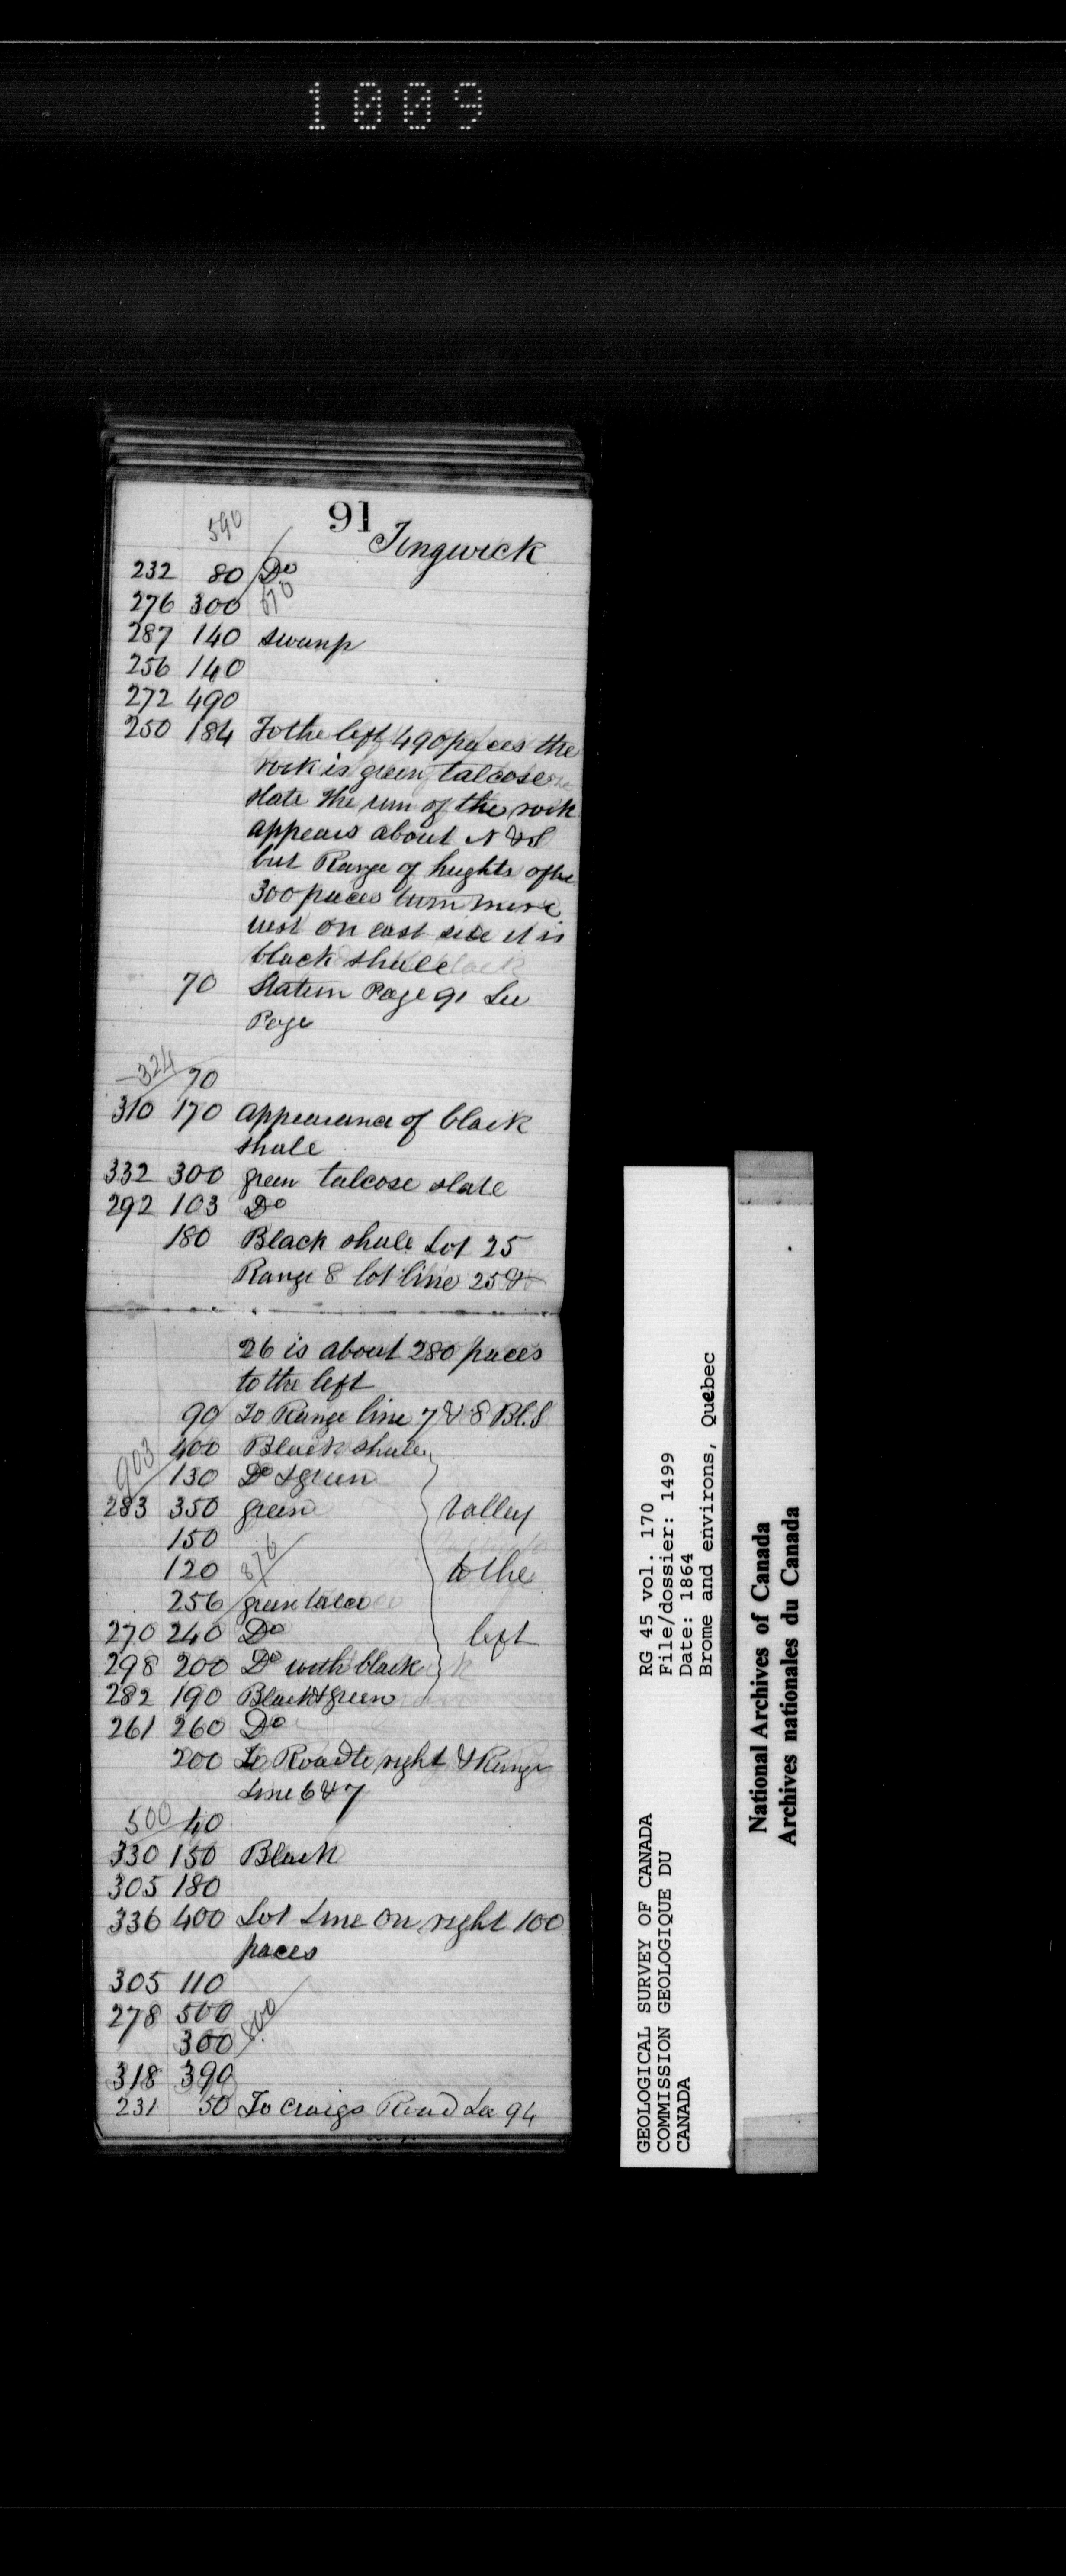 1009
91
590
Tingwick
232 80 Do
276 300 670
287 140 swamp
256 140
272 490
250 184 To the left 490 paces the
rock is green talcose
slate The run of the rock
appears about N & S
but Range of heights after
300 paces turn more
west on east side it is
black shale
70 Station Page 91 See
Page
324
70
310 170 appearance of black
shale
332 300 green talcose slate
292 103 Do
180 Black shale Lot 25
Range 8 lot line 25 &
26 is about 280 paces
to the left
90 To Range line 7 & 8 Bl. S
400 Black shale
903
130 Do & green
283 350 green valley
150
120 876 to the
256 green talco
270 240 Do left
298 200 Do with black
282 190 Black & green
261 260 Do
200 To Road to right & Range
Line 6 & 7
500 40
330 150 Black
305 180
336 400 Lot Line on right 100
paces
305 110
278 500
300 800
318 390
231 50 To Craigs Road See 94
GEOLOGICAL SURVEY OF CANADA
COMMISSION GEOLOGIQUE DU
CANADA
RG 45 vol. 170
File/dossier: 1499
Date: 1864
Brome and environs, Quebec
National Archives of Canada
Archives nationales du Canada